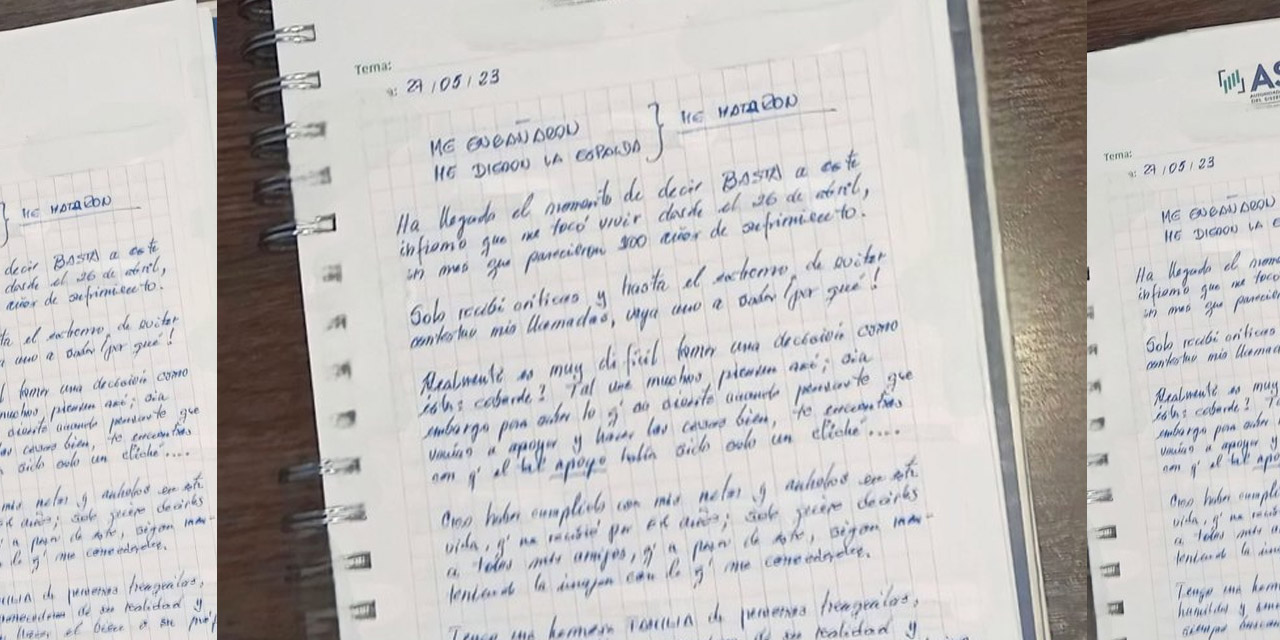 Tema:
: 27/05/23
ME ENGAÑARON
ME DIERON LA ESPALDA } ME MATARON
Ha llegado el momento de decir BASTA a este
infierno que me tocó vivir desde el 26 de abril,
un mes que parecieron 100 años de sufrimiento.
Solo recibí críticas y hasta el extremo de evitar
contestar mis llamadas, vaya uno a saber ¡por qué!
Realmente es muy difícil tomar una decisión como
ésta: cobarde? Tal vez muchos piensen así; sin
embargo para saber lo q' se siente cuando pensaste que
vas a apoyar y hacer las cosas bien, te encuentras
con q' el tal apoyo había sido solo un cliché....
Creo haber cumplido con mis metas y anhelos en esta
vida, q' me recibió por años; solo quiero decirles
a todos mis amigos, q' a pesar de esto, sigan man-
teniendo la imagen con la q' me conocieron.
Tengo una hermosa FAMILIA de personas tranquilas,
de su realidad y
AS
Tema:
: 27/05/23